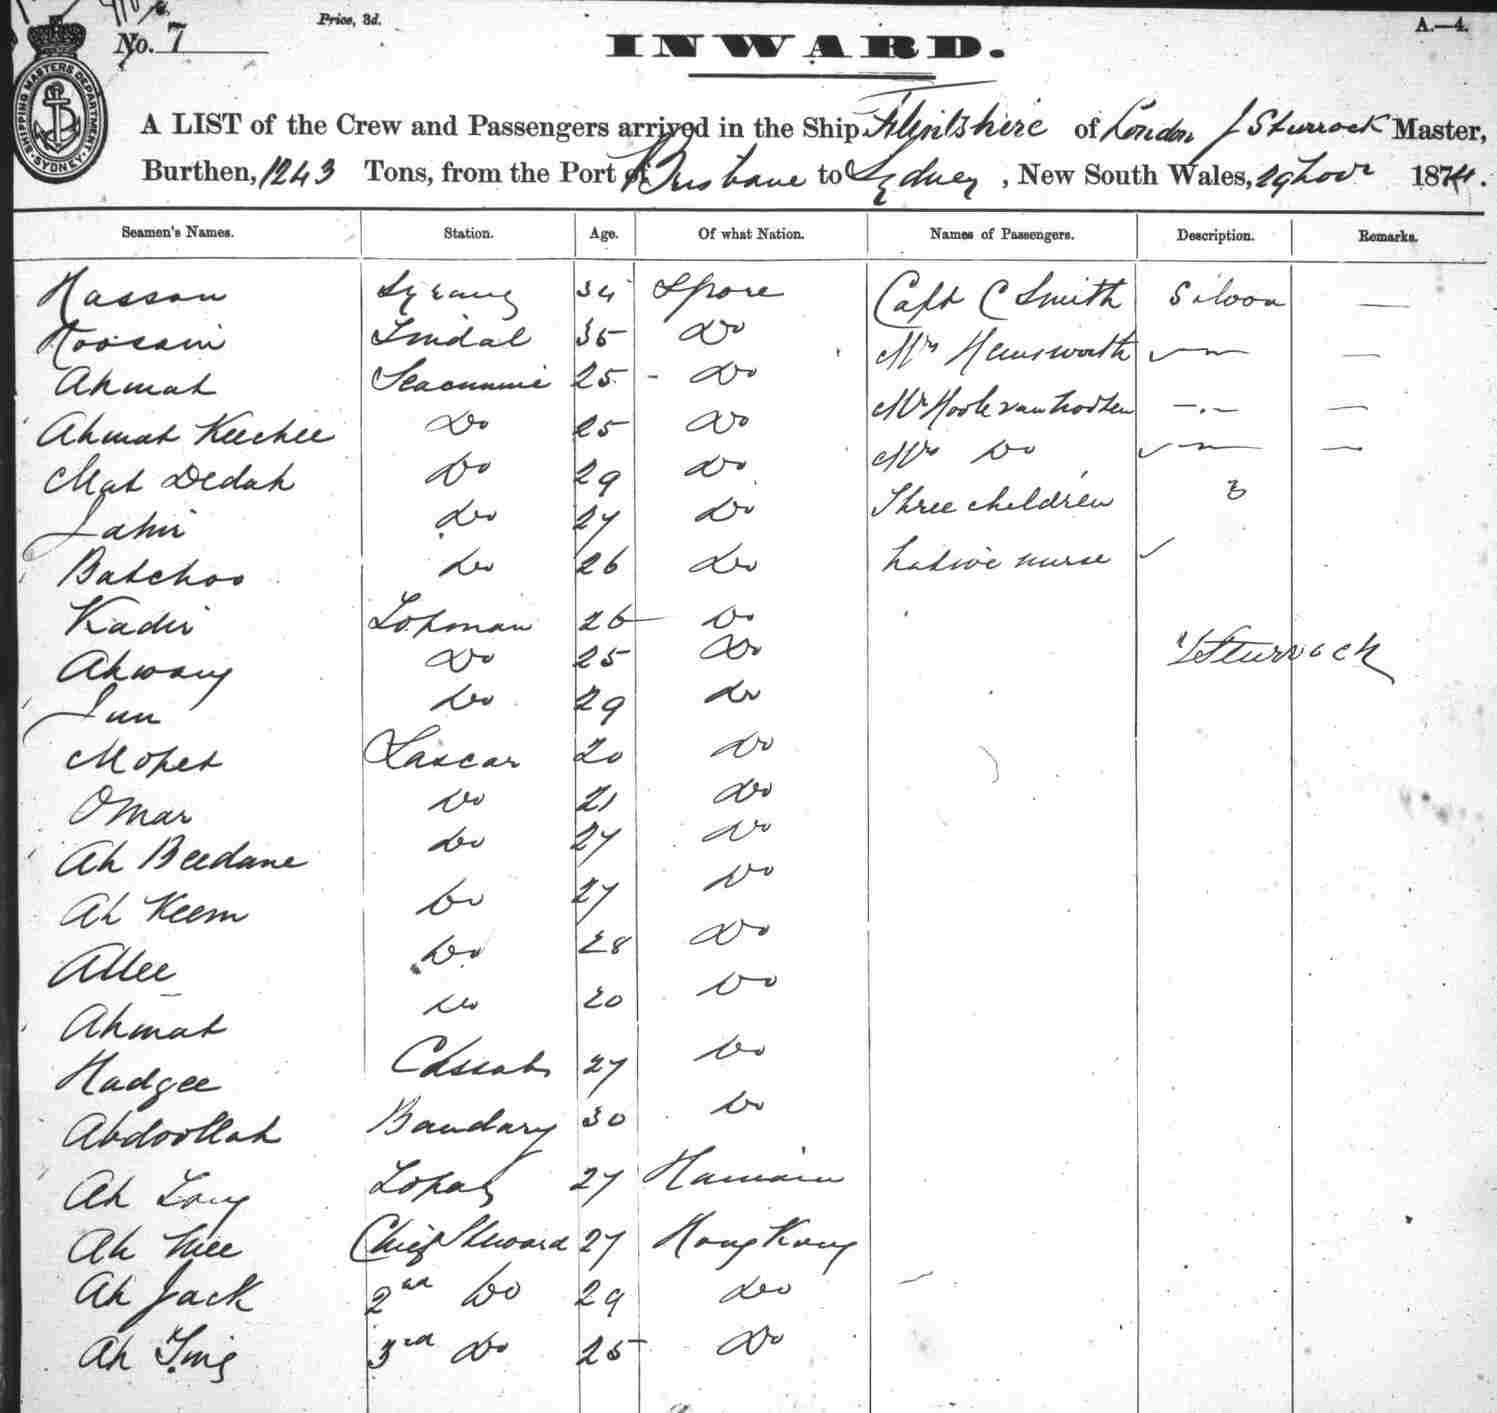 Price, 3d.
A.—4.
No. 7
INWARD.
SHIPPING MASTERS DEPARTMENT SYDNEY
A LIST of the Crew and Passengers arrived in the Ship Flintshire of London J Sturrock Master,
Burthen, 1243 Tons, from the Port of Brisbane to Sydney, New South Wales, 29 Novr 1874.
Seamen's Names. Station. Age. Of what Nation. Names of Passengers. Description. Remarks.
Hassan 34 Spore Capt C Smith Saloon —
Hoosain Tindal 35 Do Mrs Hemsworth —
Ahmat Seacunnie 25 Do
Ahmat Keechee Do 25 Do Mrs Do —
Mat Dedah Do 29 Do Three children 3
Do 27 Do
Batchoo Do 26 Do Native nurse
Kadir 26 Do
Ahwang Do 25 Do J Sturrock
Do 29 Do
Lascar 20 Do
Omar Do 21 Do
Ah Beedane Do 27 Do
Ah Keem Do 27 Do
Allee Do 28 Do
Ahmat Do 20 Do
Hadgee Cassab 27 Do
Abdoollah Bandary 30 Do
Ah Long 27
Ah Mee Chief Steward 27 Hong Kong
Ah Jack 2nd Do 29 Do
Ah 3rd Do 25 Do